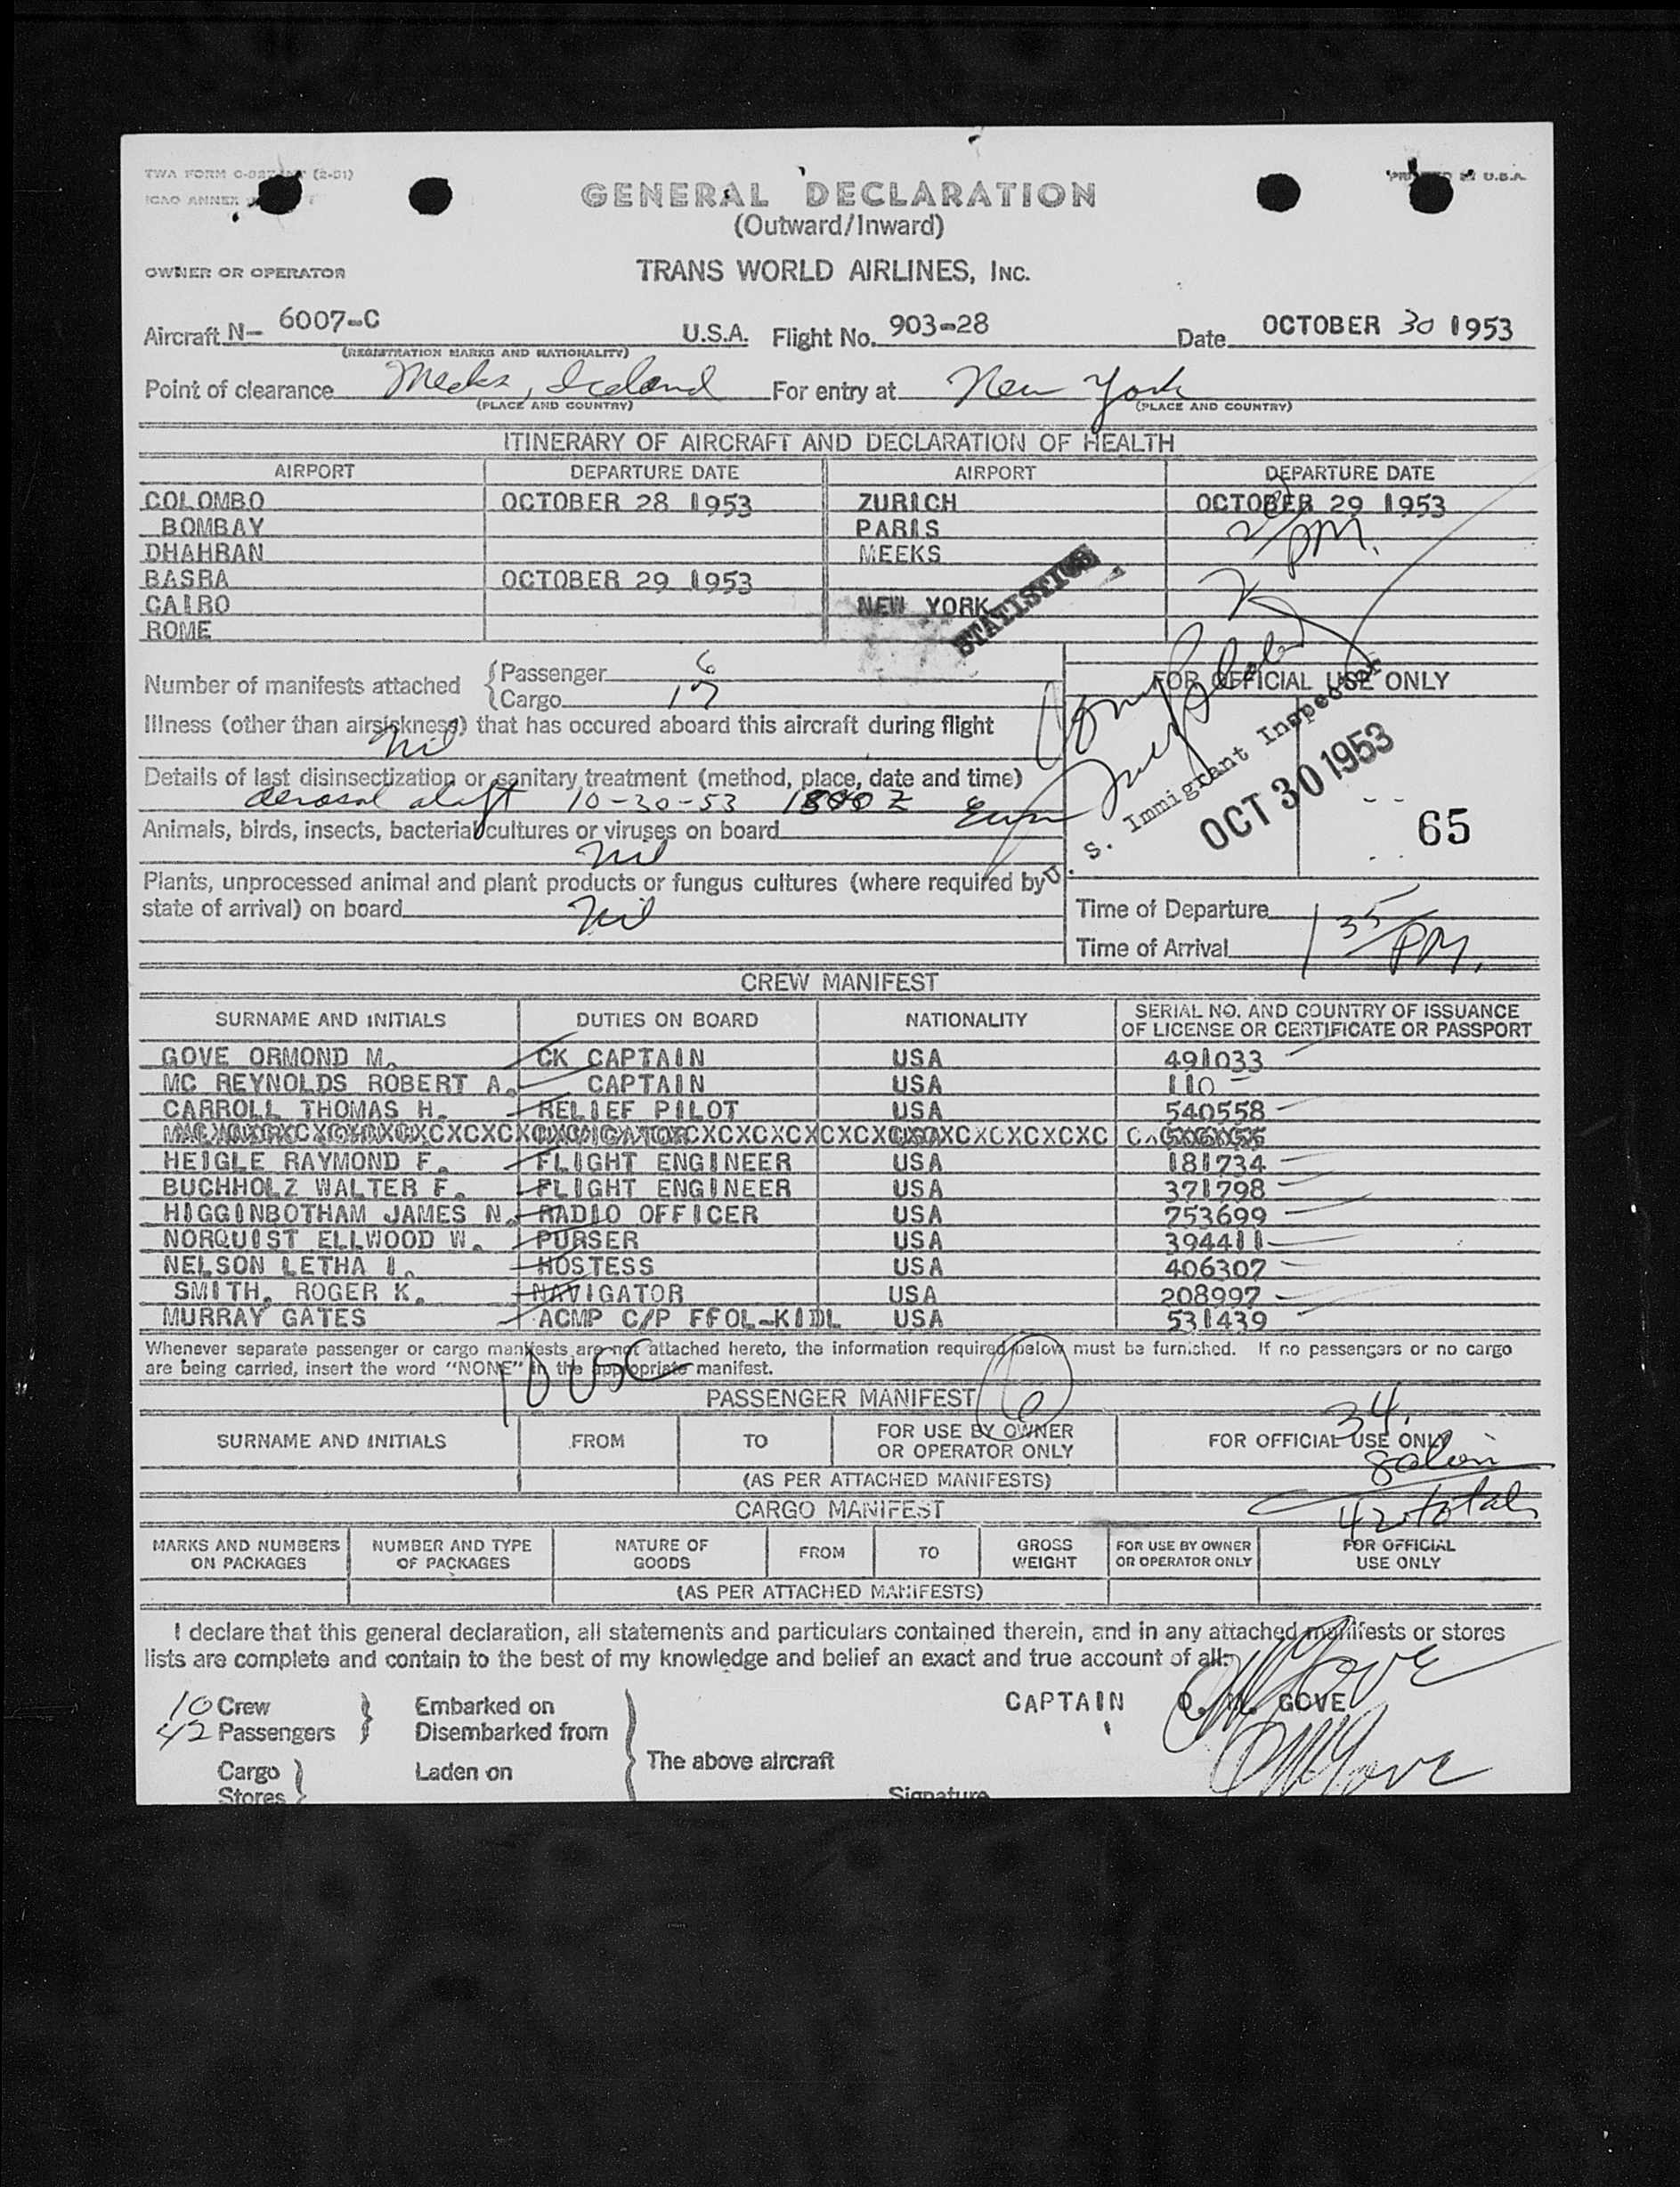 TWA FORM (2-51)
ICAO ANNEX
PRINTED IN U.S.A.
GENERAL DECLARATION
(Outward/Inward)
OWNER OR OPERATOR TRANS WORLD AIRLINES, INC.
Aircraft N- 6007-C U.S.A. Flight No. 903-28 Date OCTOBER 30 1953
(REGISTRATION MARKS AND NATIONALITY)
Point of clearance Meeks, Iceland For entry at New York
(PLACE AND COUNTRY) (PLACE AND COUNTRY)
ITINERARY OF AIRCRAFT AND DECLARATION OF HEALTH
AIRPORT DEPARTURE DATE AIRPORT DEPARTURE DATE
COLOMBO OCTOBER 28 1953 ZURICH OCTOBER 29 1953
BOMBAY PARIS
DHAHRAN MEEKS
BASRA OCTOBER 29 1953
CAIRO NEW YORK
ROME
STATISTICS
PM.
Number of manifests attached {Passenger 6
{Cargo 17
FOR OFFICIAL USE ONLY
Illness (other than airsickness) that has occured aboard this aircraft during flight
Nil
Details of last disinsectization or sanitary treatment (method, place, date and time)
aerosol aloft 10-30-53 1800Z
Animals, birds, insects, bacterial cultures or viruses on board
Nil
U. S. Immigrant Inspector
OCT 30 1953
65
Plants, unprocessed animal and plant products or fungus cultures (where required by
state of arrival) on board Nil
Time of Departure
Time of Arrival 1 35 PM.
CREW MANIFEST
SURNAME AND INITIALS DUTIES ON BOARD NATIONALITY SERIAL NO. AND COUNTRY OF ISSUANCE
OF LICENSE OR CERTIFICATE OR PASSPORT
GOVE ORMOND M. CK CAPTAIN USA 491033
MC REYNOLDS ROBERT A. CAPTAIN USA 110
CARROLL THOMAS H. RELIEF PILOT USA 540558
HEIGLE RAYMOND F. FLIGHT ENGINEER USA 181734
BUCHHOLZ WALTER F. FLIGHT ENGINEER USA 371798
HIGGINBOTHAM JAMES N. RADIO OFFICER USA 753699
NORQUIST ELLWOOD W. PURSER USA 394411
NELSON LETHA I. HOSTESS USA 406307
SMITH, ROGER K. NAVIGATOR USA 208997
MURRAY GATES ACMP C/P FFOL-KIDL USA 531439
Whenever separate passenger or cargo manifests are not attached hereto, the information required below must be furnished. If no passengers or no cargo
are being carried, insert the word "NONE" in the appropriate manifest.
10 USC
6
PASSENGER MANIFEST
34.
SURNAME AND INITIALS FROM TO FOR USE BY OWNER
OR OPERATOR ONLY FOR OFFICIAL USE ONLY
8 alien
(AS PER ATTACHED MANIFESTS)
42 total
CARGO MANIFEST
MARKS AND NUMBERS
ON PACKAGES NUMBER AND TYPE
OF PACKAGES NATURE OF
GOODS FROM TO GROSS
WEIGHT FOR USE BY OWNER
OR OPERATOR ONLY FOR OFFICIAL
USE ONLY
(AS PER ATTACHED MANIFESTS)
I declare that this general declaration, all statements and particulars contained therein, and in any attached manifests or stores
lists are complete and contain to the best of my knowledge and belief an exact and true account of all:
10 Crew Embarked on CAPTAIN O. M. GOVE
OM Gove
42 Passengers Disembarked from
The above aircraft
OM Gove
Cargo Laden on
Stores Signature